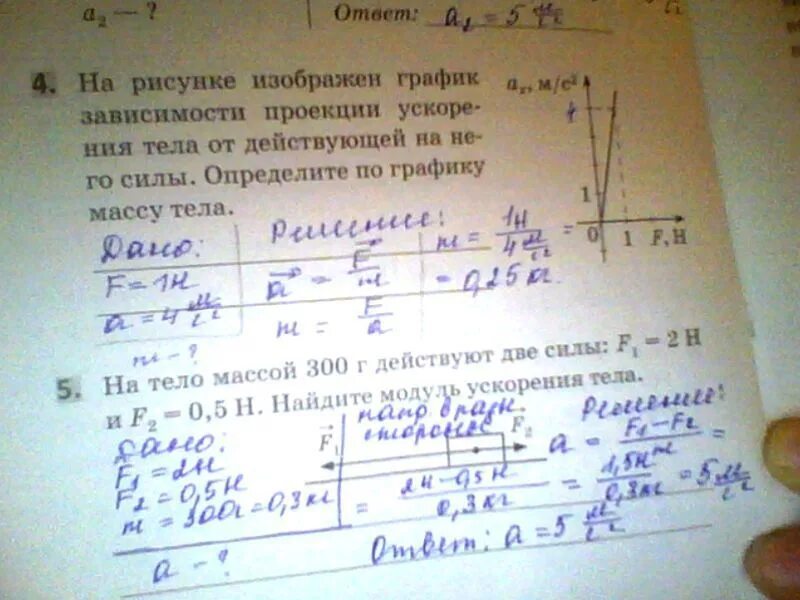 a₂ — ?
Ответ: a₂ = 5 м/с²
4. На рисунке изображен график
зависимости проекции ускоре-
ния тела от действующей на не-
го силы. Определите по графику
массу тела.
aₓ, м/с²
4
1
0 1 F, Н
Дано:
F = 1Н
a = 4 м/с²
m - ?
Решение:
a⃗ = F⃗/m
m = F/a
m = 1Н / 4 м/с² =
= 0,25 кг.
5. На тело массой 300 г действуют две силы: F₁ = 2 Н
и F₂ = 0,5 Н. Найдите модуль ускорения тела.
Дано:
F₁ = 2Н
F₂ = 0,5Н
m = 300г = 0,3 кг
a - ?
F⃗₁
F⃗₂
Решение:
a = F₁ - F₂ / m =
= 2Н - 0,5Н / 0,3 кг = 1,5Н / 0,3кг = 5 м/с²
Ответ: a = 5 м/с²